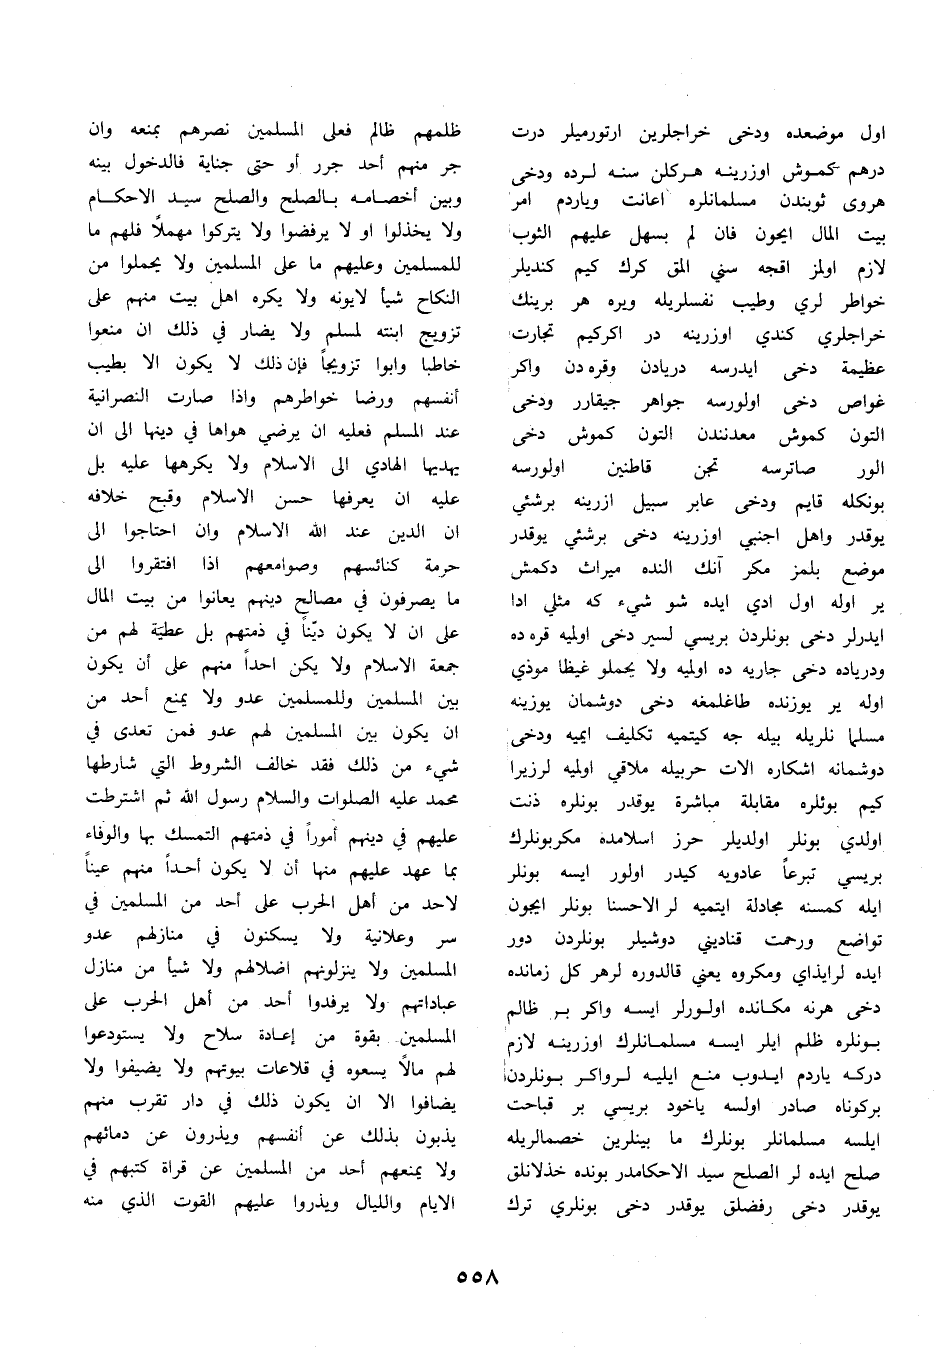 اول موضعده ودخى خراجلرين ارتورميلر درت
درهم كموش اوزرينه هركلن سنه لرده ودخى
هروى ثوبندن مسلمانلره اعانت وياردم امر
بيت المال ايچون فان لم يسهل عليهم الثوب
لازم اولمز اقچه سني المق كرك كيم كنديلر
خواطر لري وطيب نفسلريله ويره هر برينك
خراجلري كندي اوزرينه در اكركيم تجارت
عظيمة دخى ايدرسه دريادن وقره دن واكر
غواص دخى اولورسه جواهر جيقارر ودخى
التون كموش معدنندن التون كموش دخى
الور صاترسه تجن قاطنين اولورسه
بونكله قايم ودخى عابر سبيل ازرينه برشئي
يوقدر واهل اجنبي اوزرينه دخى برشئي يوقدر
موضع بلمز مكر آنك النده ميراث دكمش
ير اوله اول ادي ايده شو شيء كه مثلي ادا
ايدرلر دخى بونلردن بريسي لسير دخى اوليه قره ده
ودرياده دخى جاريه ده اوليه ولا يحملو غيظا موذي
اوله ير يوزنده طاغلمغه دخى دوشمان يوزينه
مسلما نلريله بيله جه كيتميه تكليف ايميه ودخى
دوشمانه اشكاره الات حربيله ملاقي اوليه لرزيرا
كيم بوئلره مقابلة مباشرة يوقدر بونلره ذنت
اولدي بونلر اولديلر حرز اسلامده مكربونلرك
بريسي تبرعاً عادويه كيدر اولور ايسه بونلر
ايله كمسنه مجادلة ايتميه لر الاحسنا بونلر ايچون
تواضع ورحمت قناديني دوشيلر بونلردن دور
ايده لرايذاي ومكروه يعني قالدوره لرهر كل زمانده
دخى هرنه مكانده اولورلر ايسه واكر بر ظالم
بونلره ظلم ايلر ايسه مسلمانلرك اوزرينه لازم
دركه ياردم ايدوب منع ايليه لرواكر بونلردن
بركوناه صادر اولسه ياخود بريسي بر قباحت
ايلسه مسلمانلر بونلرك ما بينلرين خصمالريله
صلح ايده لر الصلح سيد الاحكامدر بونده خذلانلق
يوقدر دخى رفضلق يوقدر دخى بونلري ترك
ظلمهم ظالم فعلى المسلمين نصرهم بمنعه وان
جر منهم أحد جرر أو حتى جناية فالدخول بينه
وبين أخصامه بالصلح والصلح سيد الاحكام
ولا يخذلوا او لا يرفضوا ولا يتركوا مهملاً فلهم ما
للمسلمين وعليهم ما على المسلمين ولا يحملوا من
النكاح شيأ لايونه ولا يكره اهل بيت منهم على
تزويج ابنته لمسلم ولا يضار في ذلك ان منعوا
خاطبا وابوا تزويجاً فإن ذلك لا يكون الا بطيب
أنفسهم ورضا خواطرهم واذا صارت النصرانية
عند المسلم فعليه ان يرضي هواها في دينها الى ان
يهديها الهادي الى الاسلام ولا يكرهها عليه بل
عليه ان يعرفها حسن الاسلام وقبح خلافه
ان الدين عند الله الاسلام وان احتاجوا الى
حرمة كنائسهم وصوامعهم اذا افتقروا الى
ما يصرفون في مصالح دينهم يعانوا من بيت المال
على ان لا يكون ديّناً في ذمتهم بل عطيّة لهم من
جمعة الاسلام ولا يكن احداً منهم على أن يكون
بين المسلمين وللمسلمين عدو ولا يمنع أحد من
ان يكون بين المسلمين لهم عدو فمن تعدى في
شيء من ذلك فقد خالف الشروط التي شارطها
محمد عليه الصلوات والسلام رسول الله ثم اشترطت
عليهم في دينهم أموراً في ذمتهم التمسك بها والوفاء
بما عهد عليهم منها أن لا يكون أحداً منهم عيناً
لاحد من أهل الحرب على أحد من المسلمين في
سر وعلانية ولا يسكنون في منازلهم عدو
المسلمين ولا ينزلونهم اضلالهم ولا شيأ من منازل
عباداتهم ولا يرفدوا أحد من أهل الحرب على
المسلمين بقوة من إعادة سلاح ولا يستودعوا
لهم مالاً يسعوه في قلاعات بيوتهم ولا يضيفوا ولا
يضافوا الا ان يكون ذلك في دار تقرب منهم
يذبون بذلك عن أنفسهم ويذرون عن دمائهم
ولا يمنعهم أحد من المسلمين عن قراة كتبهم في
الايام والليال ويذروا عليهم القوت الذي منه
٥٥٨